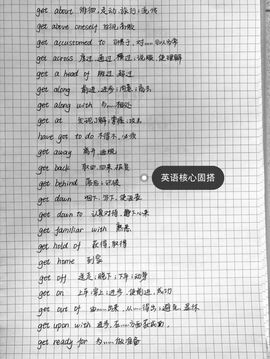 get about 徘徊,走动,旅行;流传
get above oneself 自视高傲
get accustomed to 习惯于,对……习以为常
get across 度过,通过,横过;说服,使理解
get a head of 胜过,超过
get along 前进,进步;同意;离去
get along with 与……相处
get at 发现,了解;掌握;攻击
have got to do 不得不,必须
get away 离开,逃脱
get back 取回,回来,报复
get behind 落后;识破
get down 咽下,写下,使沮丧
get down to 认真对待,静下心来
get familiar with 熟悉
get hold of 获得,取得
get home 到家
get off 送走;脱下;下车;动身
get on 上车;穿上;进步,使前进,成功
get out of 由……出来,从……得出;避免,退休
get upon with 进步,在……方面获成功
get ready for 为……做准备
英语核心固搭